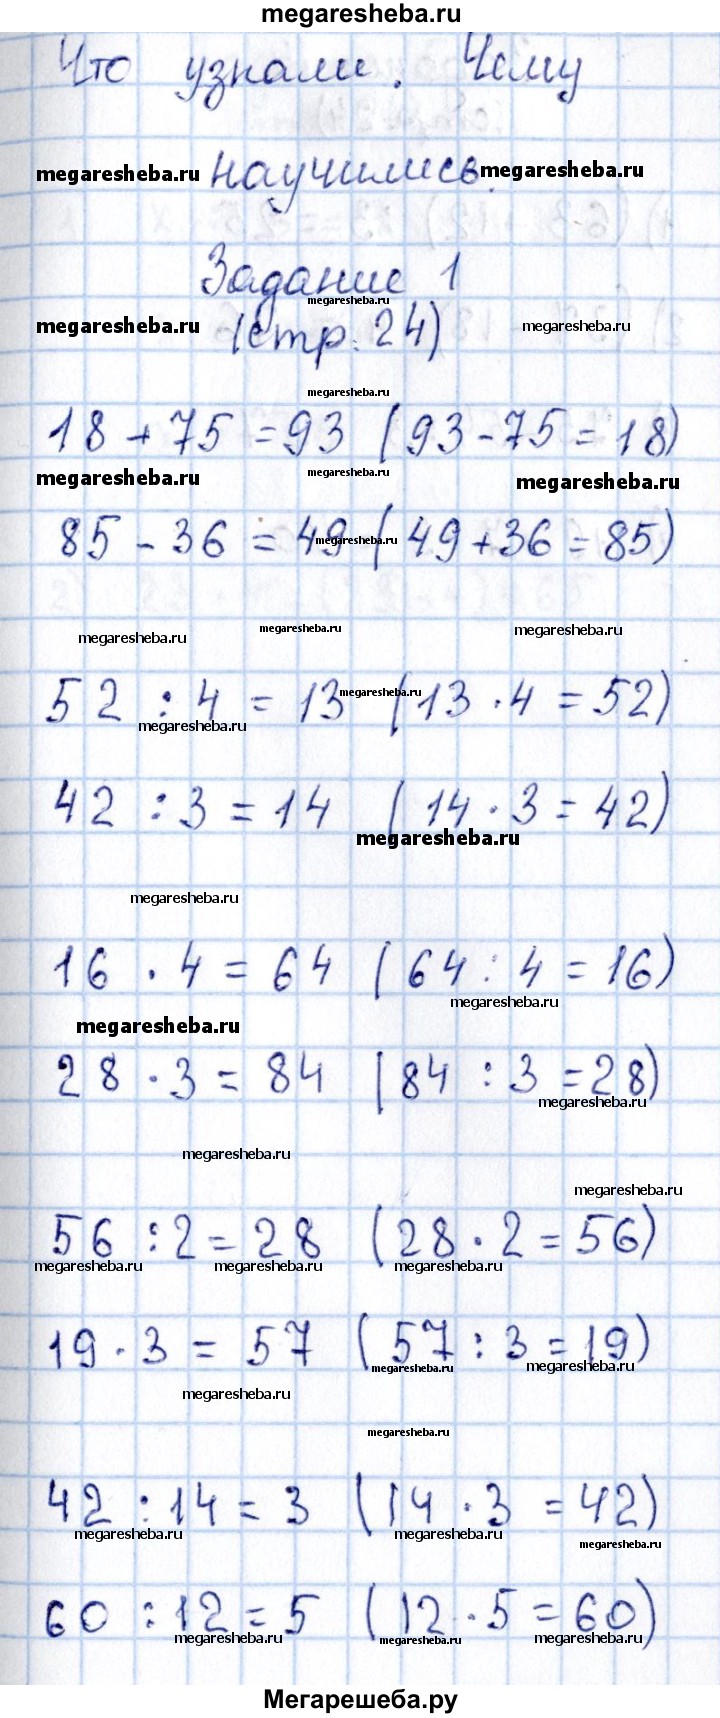 megaresheba.ru
Что узнали. Чему
megaresheba.ru научились. megaresheba.ru
Задание 1
megaresheba.ru
megaresheba.ru (стр. 24) megaresheba.ru
megaresheba.ru
18 + 75 = 93 (93 - 75 = 18)
megaresheba.ru megaresheba.ru megaresheba.ru
85 - 36 = 49 megaresheba.ru (49 + 36 = 85)
megaresheba.ru megaresheba.ru megaresheba.ru
52 : 4 = 13 megaresheba.ru (13 · 4 = 52)
megaresheba.ru
42 : 3 = 14 (14 · 3 = 42)
megaresheba.ru
megaresheba.ru
16 · 4 = 64 (64 : 4 = 16)
megaresheba.ru
megaresheba.ru
28 · 3 = 84 (84 : 3 = 28)
megaresheba.ru
megaresheba.ru
megaresheba.ru
56 : 2 = 28 (28 · 2 = 56)
megaresheba.ru megaresheba.ru megaresheba.ru
19 · 3 = 57 (57 : 3 = 19)
megaresheba.ru megaresheba.ru
megaresheba.ru
megaresheba.ru
42 : 14 = 3 (14 · 3 = 42)
megaresheba.ru megaresheba.ru megaresheba.ru
60 : 12 = 5 (12 · 5 = 60)
megaresheba.ru megaresheba.ru megaresheba.ru
Мегарешеба.ру